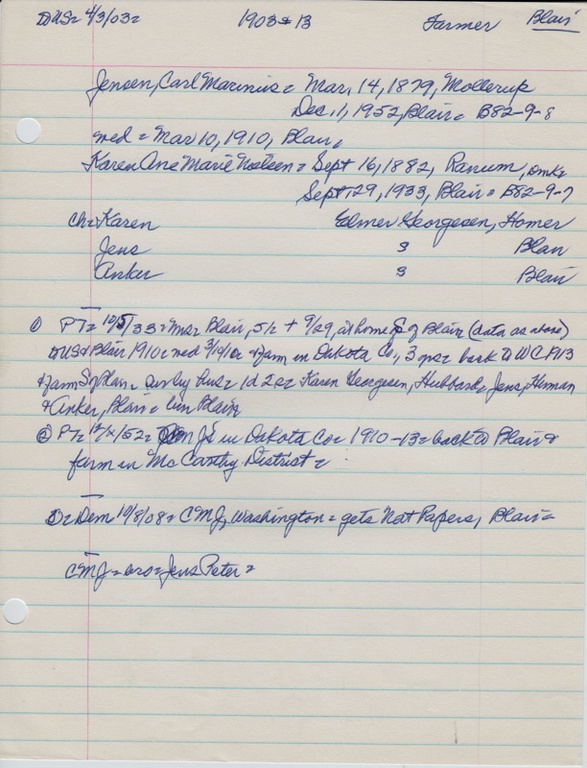 DUS= 4/3/03= 1903 & 13 Farmer Blair
Jensen, Carl Marinus = Mar, 14, 1879, Mollerup
Dec, 1, 1952, Blair = B82-9-8
med = Mar 10, 1910, Blair,
Karen Ane Marie = Sept 16, 1882, Ranum, Dmk=
Sept, 29, 1933, Blair = B82-9-7
ch= Karen Elmer Georgesen, Homer
Jens s Blair
Anker s Blair
① PT= 10/5/33 = Blair, 51= + 9/29, at home S of Blair (data as above)
DUS & Blair 1910 = med 3/10/10 & farm in Dakota Co., 3 yrs= back to WC 1913
& farm S of Blair = surby hus= 1d 2s= Karen Georgesen, Hubbard, Jens, Herman
& Anker, Blair = Blair,
② PT= in Dakota Co= 1910-13= back to Blair &
farm in McCarthy District=
D= Dem 10/8/08= CMJ, Washington = gets Nat Papers, Blair=
CMJ = bro= Jens Peter=